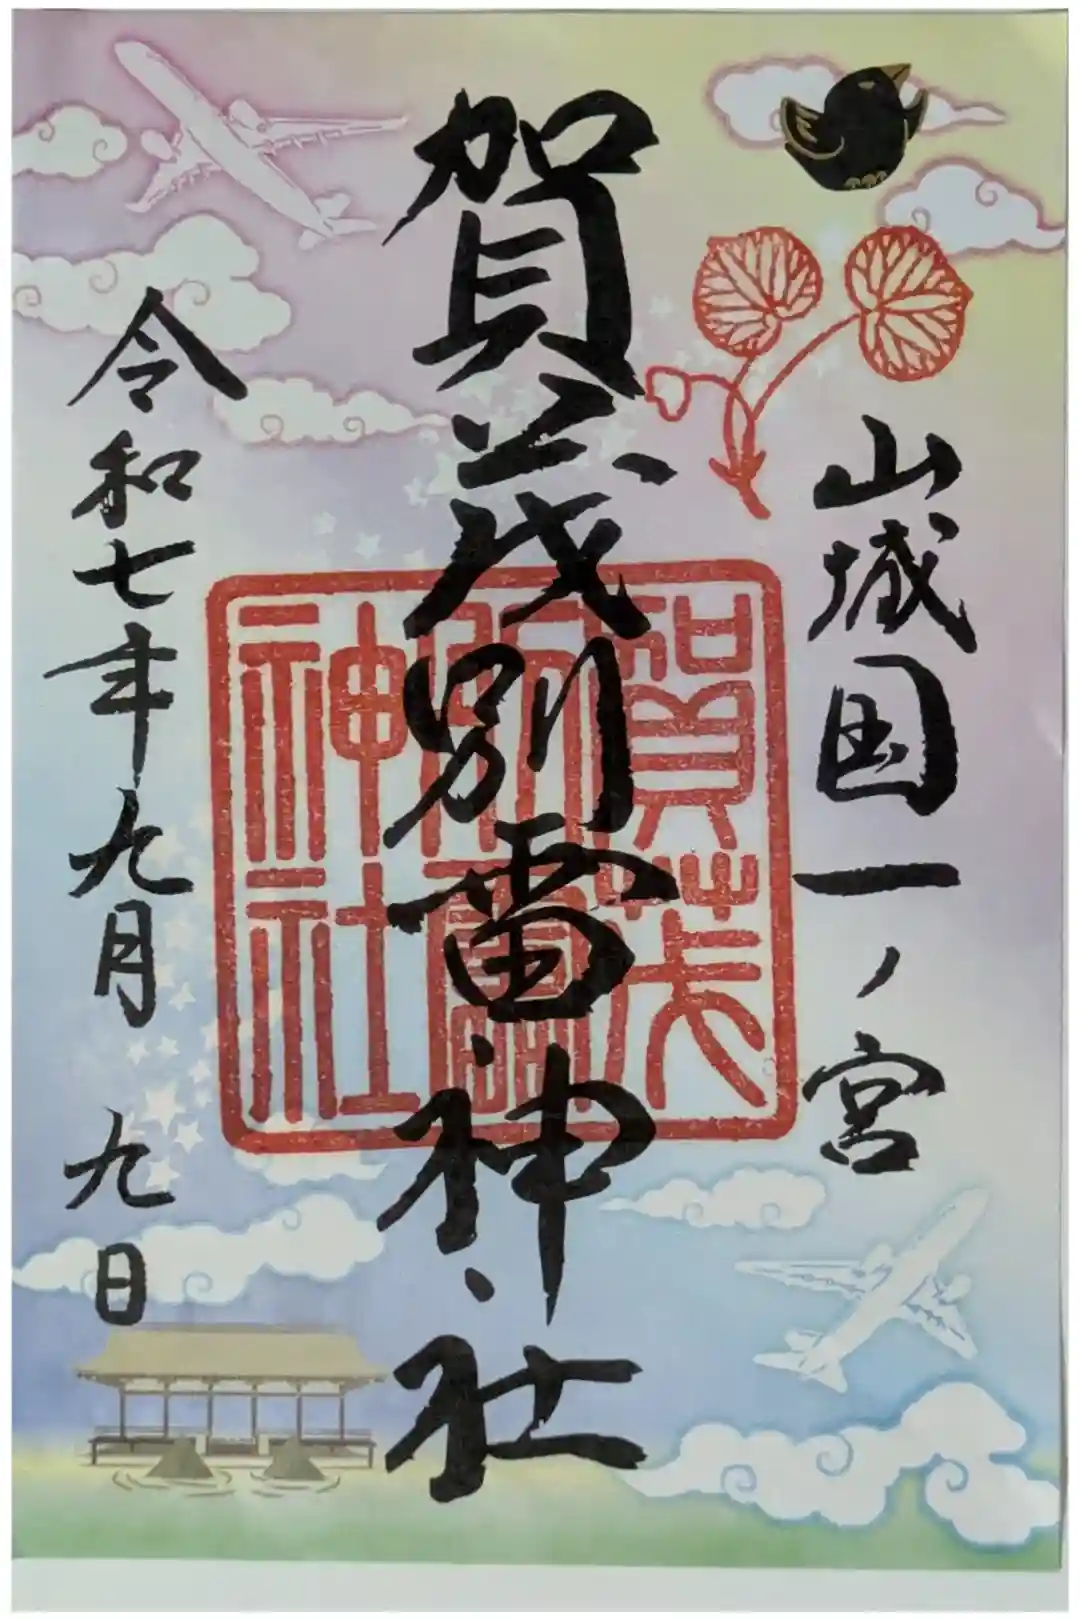 山城国一ノ宮
賀茂別雷神社
賀茂
別雷
神社
令和七年九月九日